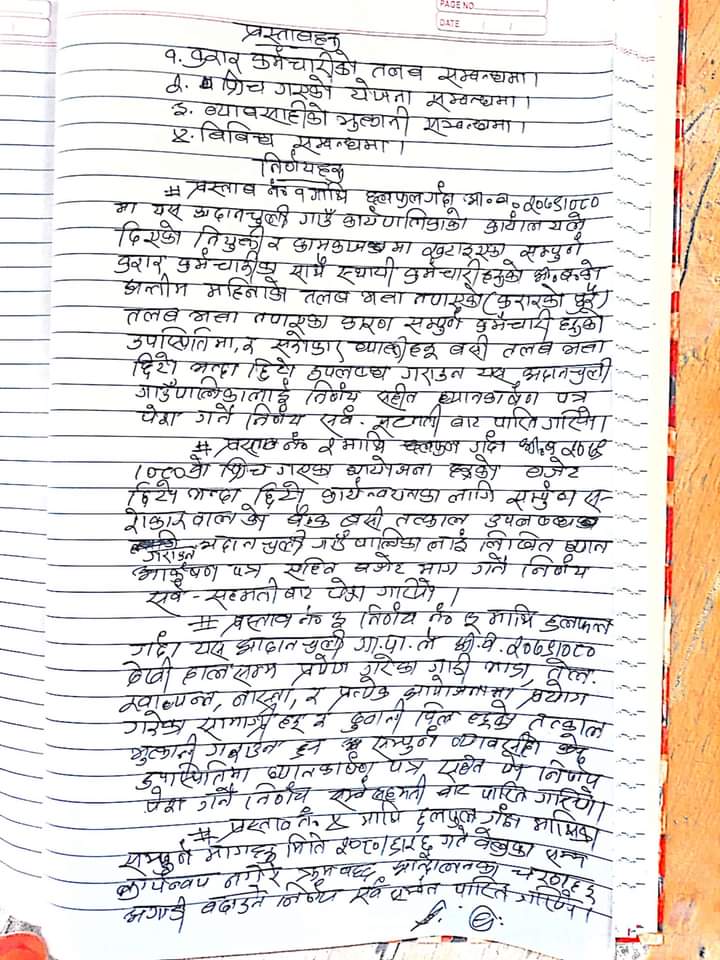 PAGE NO.
DATE
प्रस्तावहरु
१. करार कर्मचारीको तलब सम्बन्धमा।
२. फ्रिच गरएको योजना सम्बन्धमा।
३. ब्यावसाहीको भुक्तानी सम्बन्धमा।
४. बिबिध सम्बन्धमा।
निर्णयहरु
# प्रस्ताव नं. १ माथि छलफल गर्दा आ.व. २०७९।०८०
मा यस अदानचुली गाउँ कार्यपालिकाको कार्यालयले
दिएको नियुक्ती र कामकाजका मा खटाइएका सम्पुर्ण
करार कर्मचारीका साथै स्थायी कर्मचारी हरुको आ.व.को
अन्तीम महिनाको तलब भत्ता नपाएको (करारको पुरै)
तलब भत्ता नपाएका कारण सम्पुर्ण कर्मचारी हरुको
उपस्थितिमा, र सरोकार व्याक्तीहरु बसी तलब भत्ता
छिटो भन्दा छिटो उपलब्ध गराउन यस अदानचुली
गाउँपालिकालाई निर्णय सहीत ध्यानकार्षण पत्र
पेश गर्ने निर्णय सर्व. सहमती बाट पारित गरियो।
# प्रस्ताव नं २ माथि छलफल गर्दा आ.व २०७९
।०८०को फ्रिच गरएका आयोजना हरुको बजेट
छिटो भन्दा छिटो कार्यन्वयनका लागि सम्पुर्ण स-
रोकारवालाको बैठक बसी तत्काल उपलब्ध
गराउन अदानचुली गाउँपालिकालाई लिखित ध्यान
आर्कषण पत्र सहित बजेट माग गर्ने निर्णय
सर्व - सहमती बाट पेश गरियो।
# प्रस्ताव नं ३ निर्णय नं ३ माथि छलफल
गर्दा यस अदानचुली गा.पा. ले आ.व. २०७९।०८०
देखी हालसम्म प्रयोग गरेका गाडी भाडा, तेल.
खाद्यान्न, नास्ता, र प्रत्येक आयोजनामा प्रयोग
गरेका सामाग्री हरु र दुवानी बिल हरुको तत्काल
भुक्तानी गराउन सम्पुर्ण ब्यावसाही को
उपस्थितिमा ध्यानकार्षण पत्र सहित निर्णय
पेश गर्ने निर्णय सर्व सहमती बाट पारित गरियो।
# प्रस्ताव नं. ४ माथि छलफल गर्दा माथिका
सम्पुर्ण मागहरु मिति २०८० गते सम्म
कार्यन्वयन नगरे क्रमबद्ध आन्दोलनका चरणहरु
अगाडी बढाउने निर्णय सर्व पारित गरियो।